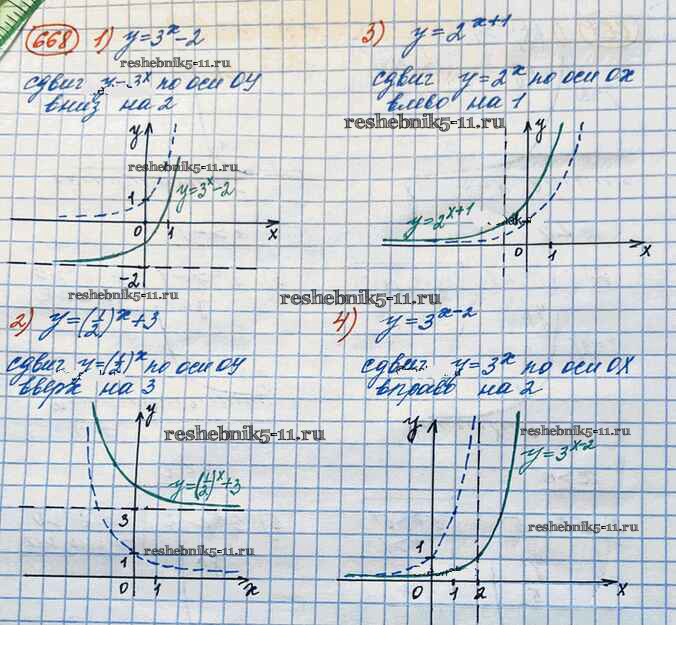 668 1) y=3^x-2
reshebnik5-11.ru
сдвиг y=3^x по оси OY
вниз на 2
y
reshebnik5-11.ru
1
y=3^x-2
0 1 x
-2
reshebnik5-11.ru
2) y=(1/2)^x+3
сдвиг y=(1/2)^x по оси OY
вверх на 3
y
reshebnik5-11.ru
y=(1/2)^x+3
3
reshebnik5-11.ru
1
0 1 x
3) y=2^{x+1}
сдвиг y=2^x по оси OX
влево на 1
reshebnik5-11.ru
y
y=2^{x+1}
0 1 x
reshebnik5-11.ru
4) y=3^{x-2}
сдвиг y=3^x по оси OX
вправо на 2
y
y=3^{x-2}
reshebnik5-11.ru
1
0 1 2 x